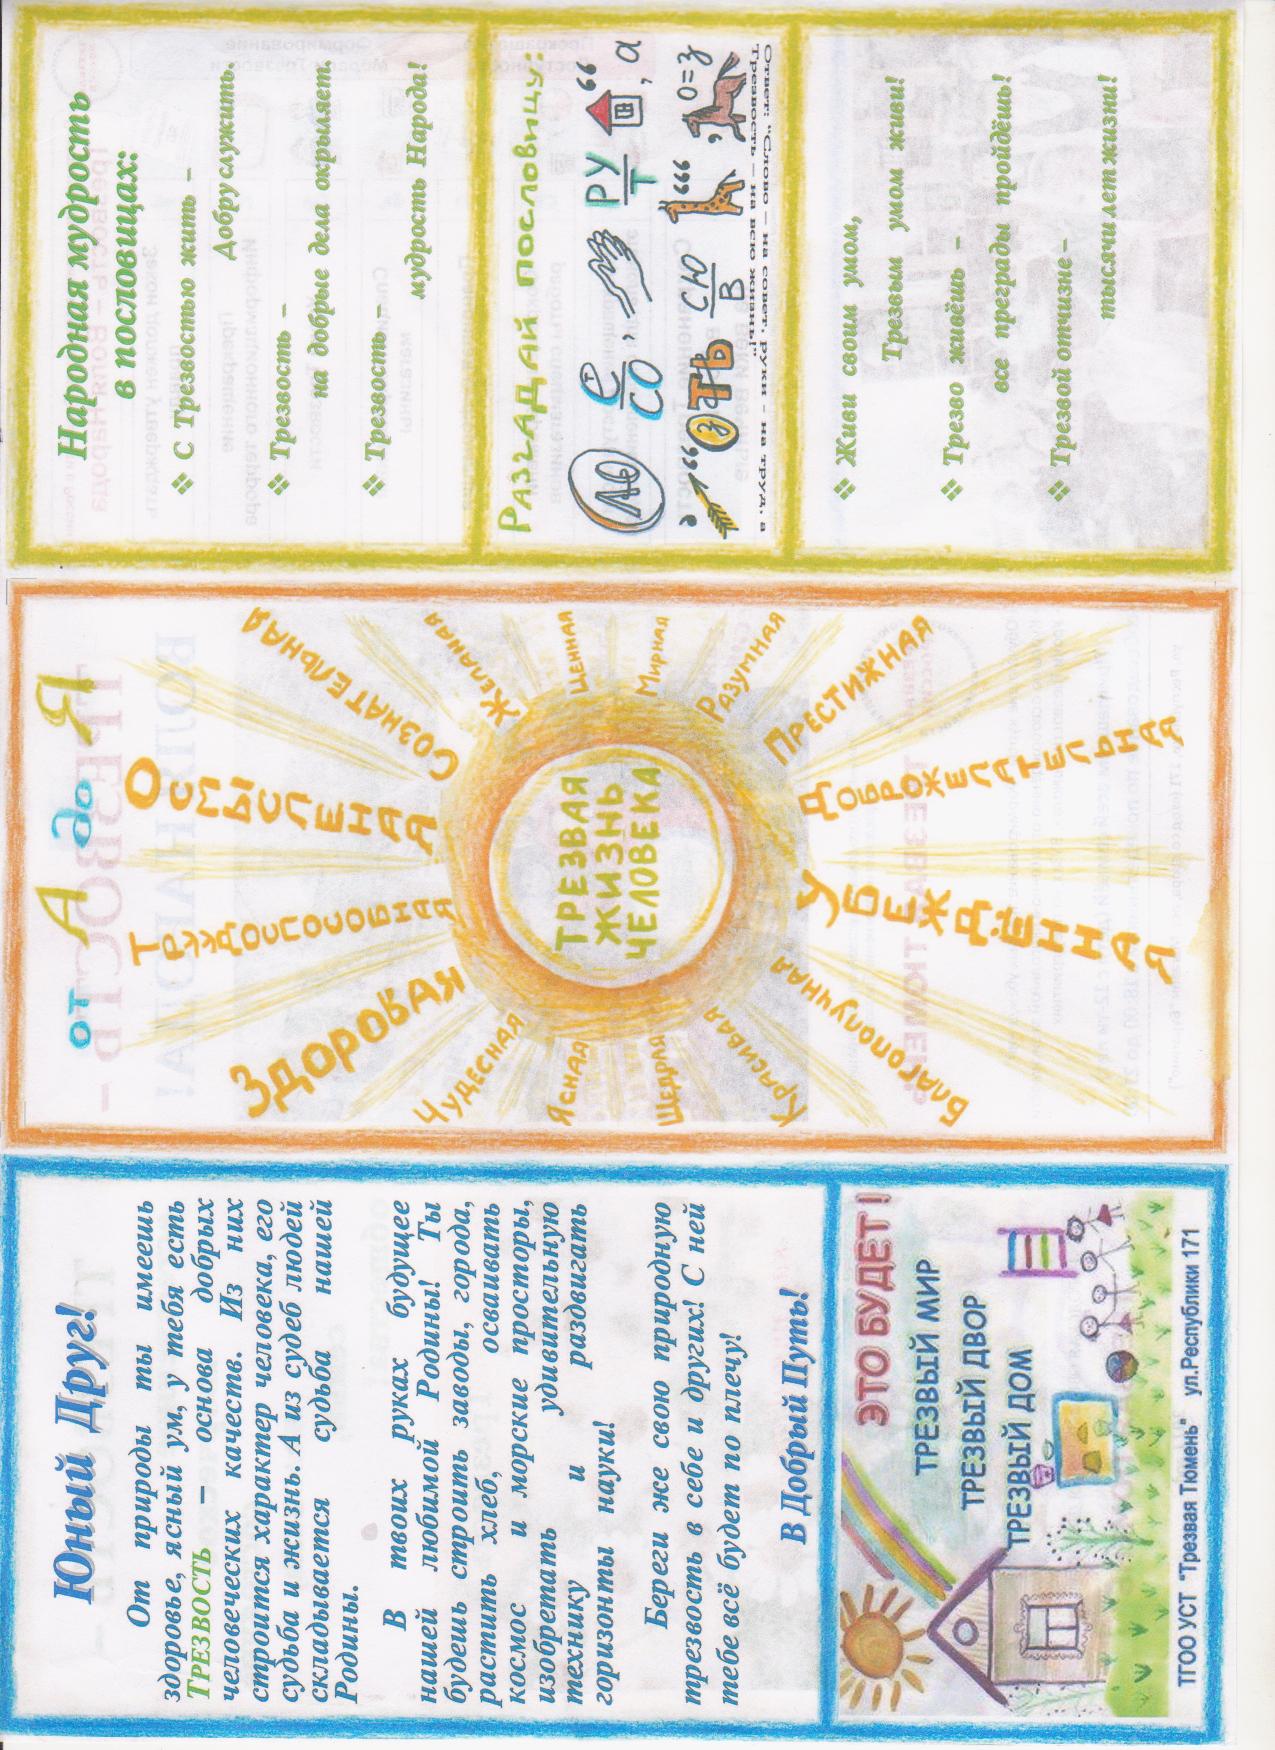 Юный Друг!
От природы ты имеешь
здоровье, ясный ум, у тебя есть
ТРЕЗВОСТЬ – основа добрых
человеческих качеств. Из них
строится характер человека, его
судьба и жизнь. А из судеб людей
складывается судьба нашей
Родины.
В твоих руках будущее
нашей любимой Родины! Ты
будешь строить заводы, города,
растить хлеб, осваивать
космос и морские просторы,
изобретать удивительную
технику и раздвигать
горизонты науки!
Береги же свою природную
трезвость в себе и других! С ней
тебе всё будет по плечу!
В Добрый Путь!
ЭТО БУДЕТ!
ТРЕЗВЫЙ МИР
ТРЕЗВЫЙ ДВОР
ТРЕЗВЫЙ ДОМ
ТГОО УСТ "Трезвая Тюмень" ул.Республики 171
от А до Я
ЗДОРОВАЯ
ТРУДОПОДОБНАЯ
ОСМЫСЛЕННАЯ
СОЗНАТЕЛЬНАЯ
ЧУДЕСНАЯ
ЖЕЛАННАЯ
ЯСНАЯ
ЦЕННАЯ
ТРЕЗВАЯ
ЖИЗНЬ
ЧЕЛОВЕКА
ЩЕДРАЯ
МИРНАЯ
КРАСИВАЯ
РАЗУМНАЯ
БЛАГОПОЛУЧНАЯ
ПРЕСТИЖНАЯ
УБЕЖДЁННАЯ
ДОБРОЖЕЛАТЕЛЬНАЯ
Народная мудрость
в пословицах:
❖ С Трезвостью жить –
Добру служить.
❖ Трезвость –
на добрые дела окрыляет.
❖ Трезвость –
мудрость Народа!
РАЗГАДАЙ ПОСЛОВИЦУ:
ЛО
Ет
СО
,
РУ
Т
“
, а
‘
“
ЗОТЬ
СЮ
В
“‘
,
О=З
Ответ: "Слово – на совет, руки – на труд, а
Трезвость – на всю жизнь!"
❖ Живи своим умом,
Трезвым умом живи!
❖ Трезво живёшь –
все преграды пройдёшь!
❖ Трезвой отчизне –
тысячи лет жизни!